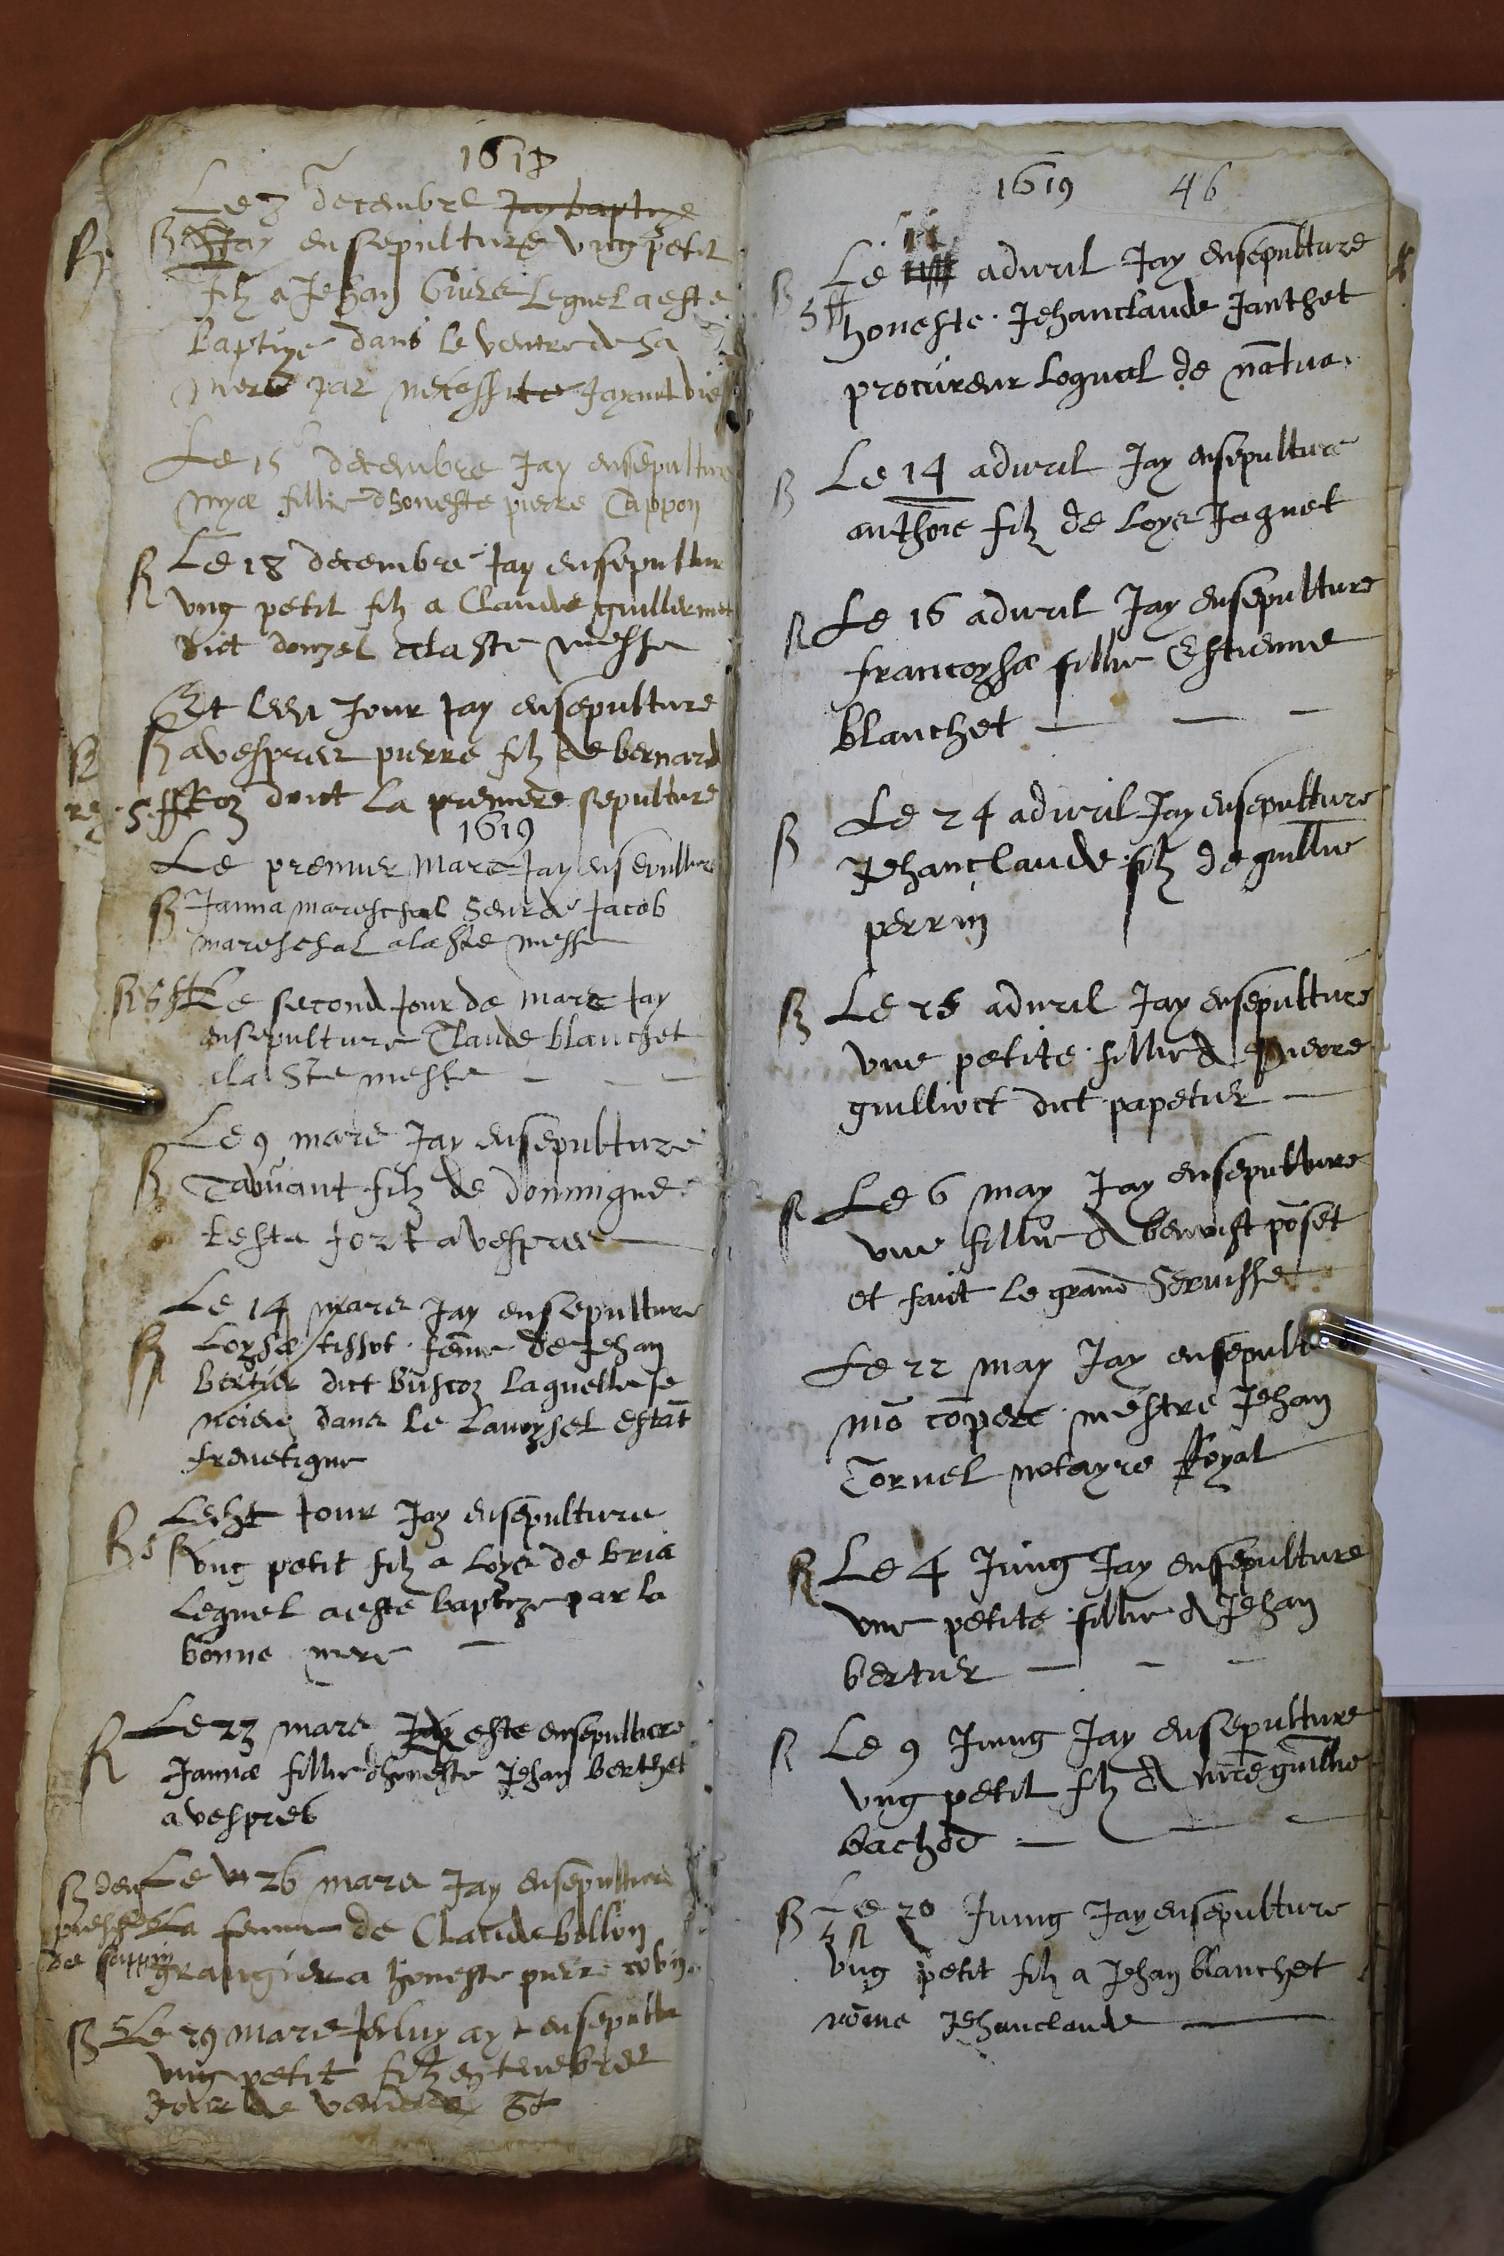 1618
Le 3 decembre Jay baptize
Jay ensepulture ung petit
filz a Jehan Lequel a este
baptize dans le ventre de sa
mere par necessite
Le 15 decembre Jay ensepulture
mya fillie dhoneste pierre Cappon
Le 18 decembre Jay ensepulture
ung petit filz a Claude guillermet
dict donzel a la ste messe
Et led Jour Jay ensepulture
a vespres pierre filz de bernard
dont la premiere sepulture
1619
Le premier Mars Jay ensepulture
Janna mareschal seur de Jacob
mareschal a la ste messe
Le second Jour de mars Jay
ensepulture Claude blanchet
a la Ste messe
Le 9 mars Jay ensepulture
filz de dominique
testa fort a vespres
Le 14 mars Jay ensepulture
Loysa tissot femme de Jehan
bertier dict buscoz laquelle se
dans le estat
frenetique
Ledict Jour Jay ensepulture
ung petit filz a Loys de bria
Lequel a este baptize par la
bonne mere
Le 23 mars Jay este ensepulture
Janna fillie dhoneste Jehan berthet
a vespres
Le 26 mars Jay ensepulture
La femme de Claude bollon
grangier a honeste pierre
Le 29 mars ensepultu
ung petit filz en tenebres
Jour de St
1619 46
Le 11 advril Jay ensepulture
honeste Jehanclaude Janthet
procureur Logucal de natua
Le 14 advril Jay ensepulture
anthoie filz de Loys Jaquet
Le 16 advril Jay ensepulture
francoysa fillie Estienne
blanchet
Le 24 advril Jay ensepulture
Jehanclaude filz de guillie
perrin
Le 25 advril Jay ensepulture
une petite fillie a pierre
guillioct dict papetier
Le 6 may Jay ensepulture
une fillie a benoist poset
et faict le grand Servisse
Le 22 may Jay ensepult
mo copere mestre Jehan
Tornel notayre Royal
Le 4 Jung Jay ensepulture
une petite fillie a Jehan
bertier
Le 9 Jung Jay ensepulture
ung petit filz a guillie
bachod
Le 20 Jung Jay ensepulture
ung petit filz a Jehan blanchet
nome Jehanclaude